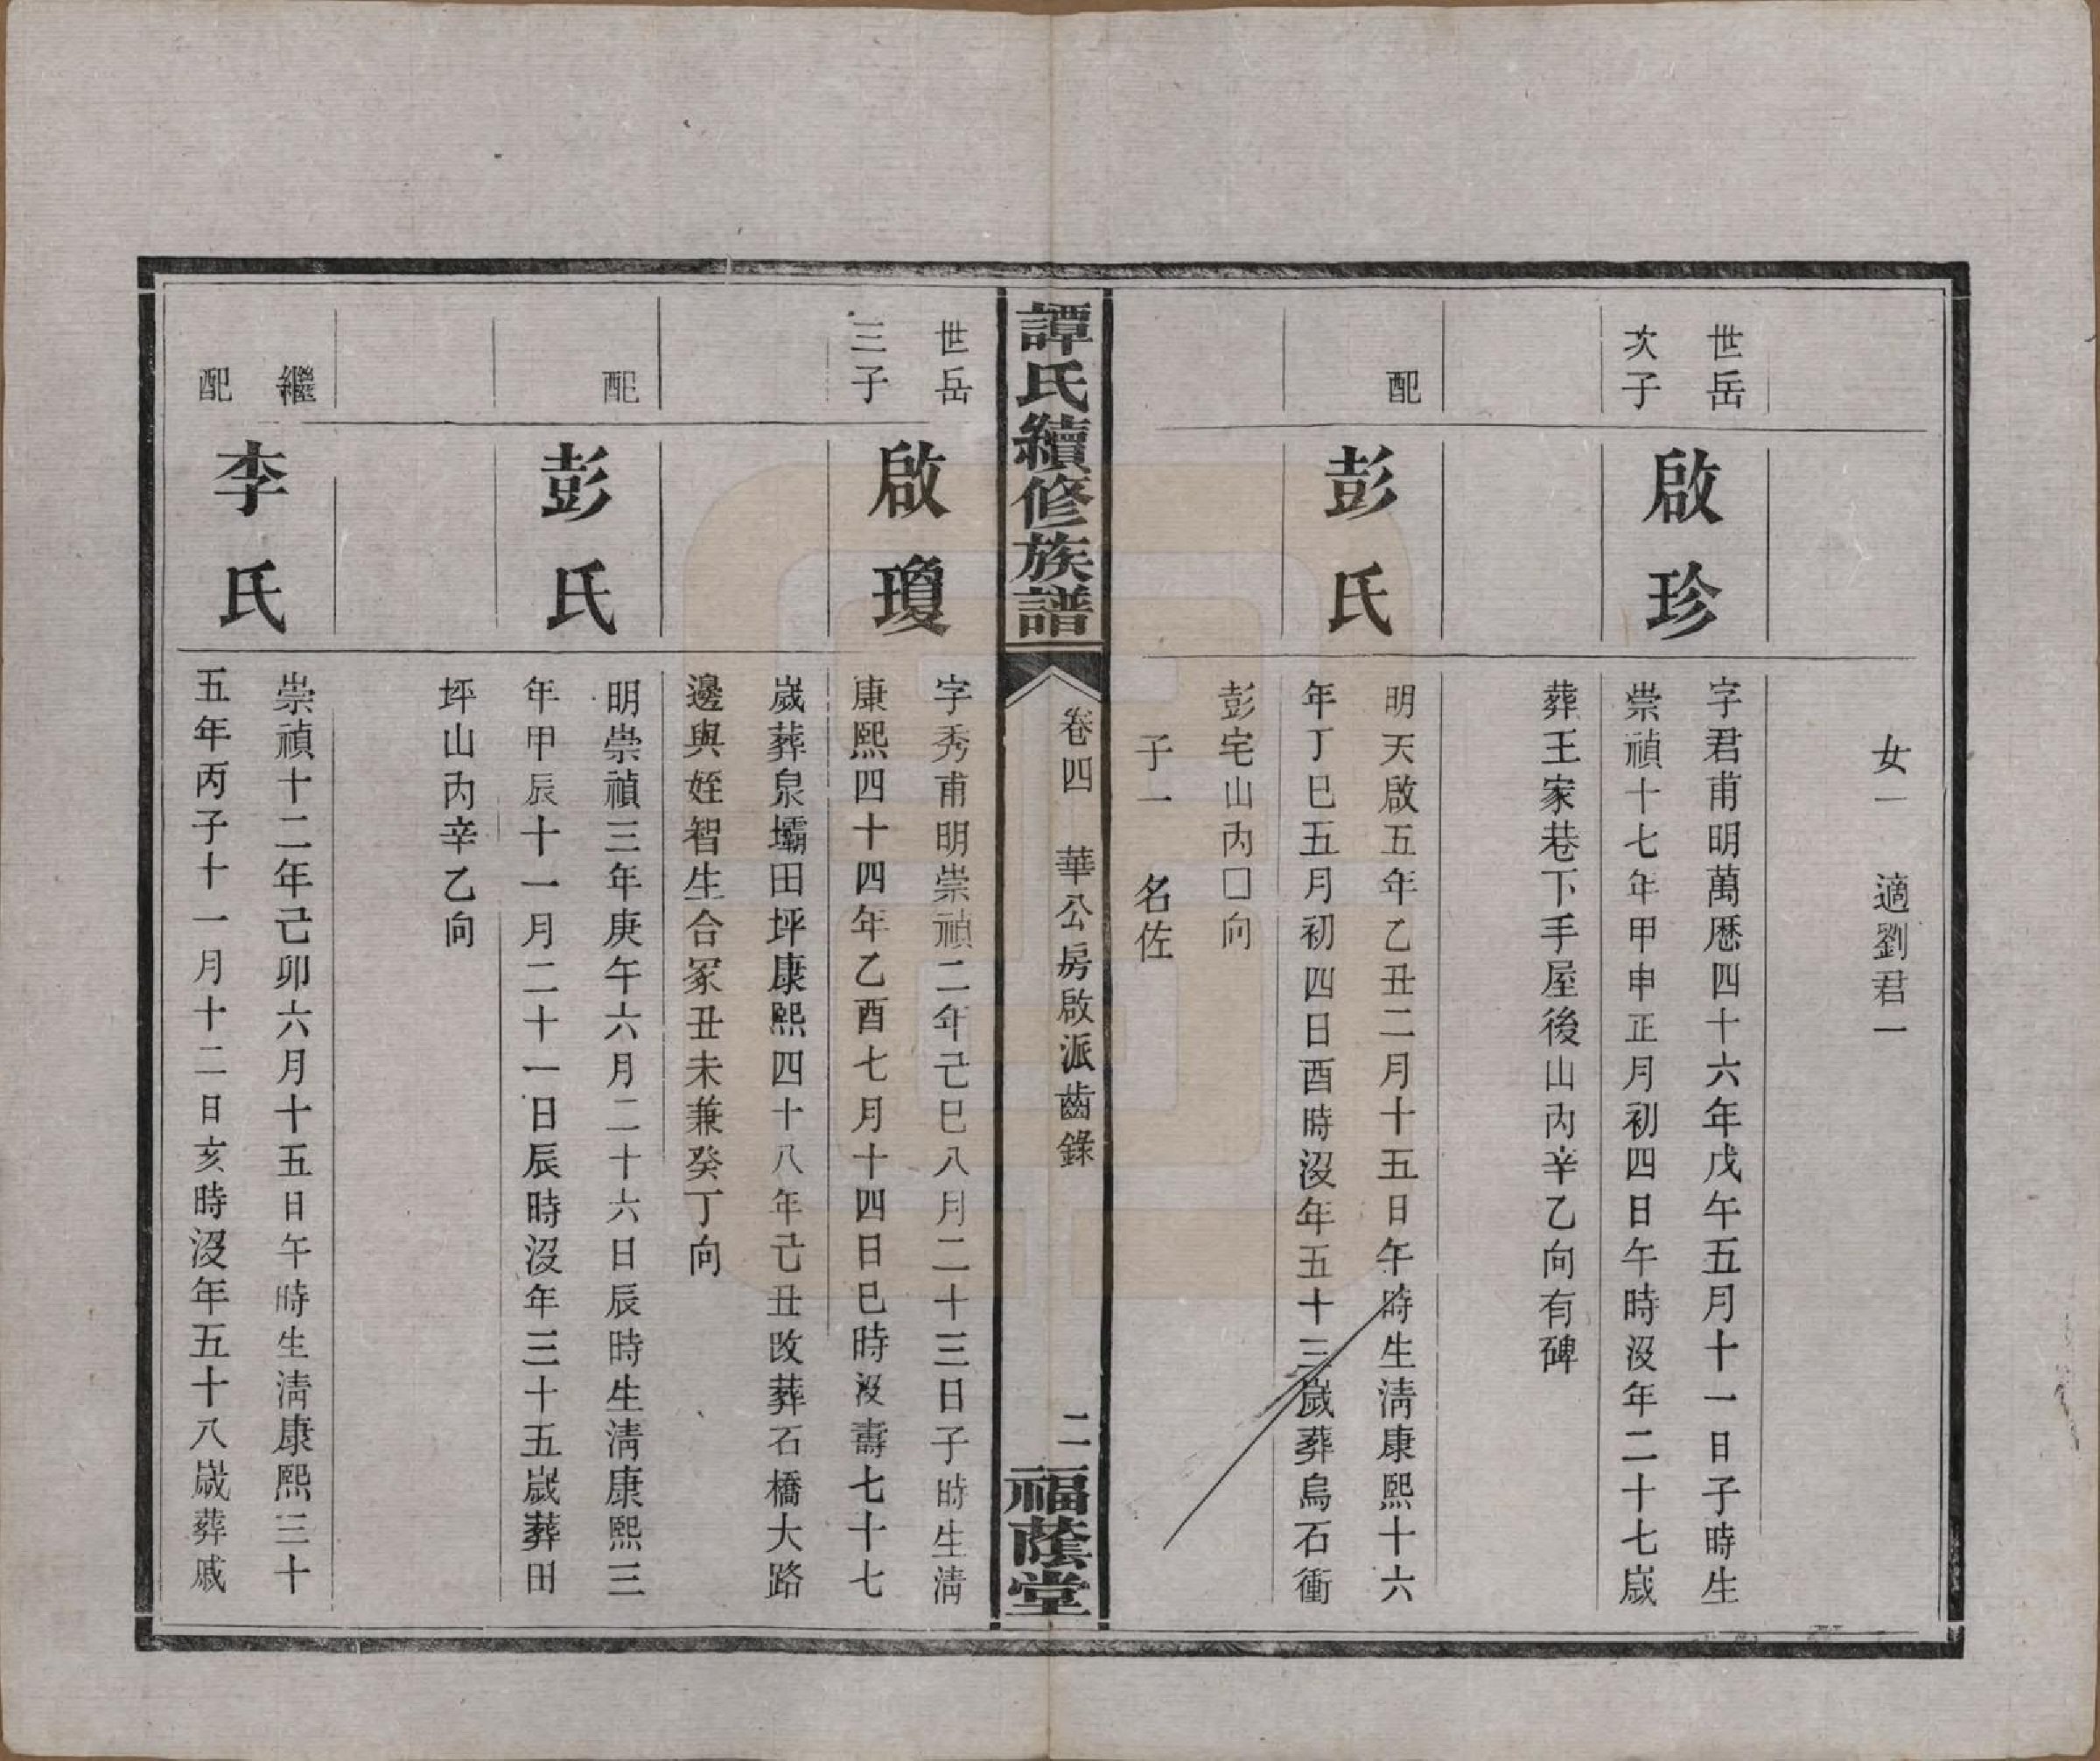 女一　適劉君一
世岳
次子
啟珍
字君甫明萬歷四十六年戊午五月十一日子時生
崇禎十七年甲申正月初四日午時沒年二十七歲
葬王家巷下手屋後山內辛乙向有碑
配
彭氏
明天啟五年乙丑二月十五日午時生清康熙十六
年丁巳五月初四日酉時沒年五十三歲葬烏石衝
彭宅山內口向
子一　名佐
譚氏續修族譜
卷四　華公房啟派齒錄
二
二福蔭堂
世岳
三子
啟瓊
字秀甫明崇禎二年己巳八月二十三日子時生清
康熙四十四年乙酉七月十四日巳時沒壽七十七
歲葬泉壩田坪康熙四十八年己丑改葬石橋大路
邊與姪智生合冢丑未兼癸丁向
配
彭氏
明崇禎三年庚午六月二十六日辰時生清康熙三
年甲辰十一月二十一日辰時沒年三十五歲葬田
坪山內辛乙向
繼
配
李氏
崇禎十二年己卯六月十五日午時生清康熙三十
五年丙子十一月十二日亥時沒年五十八歲葬戚